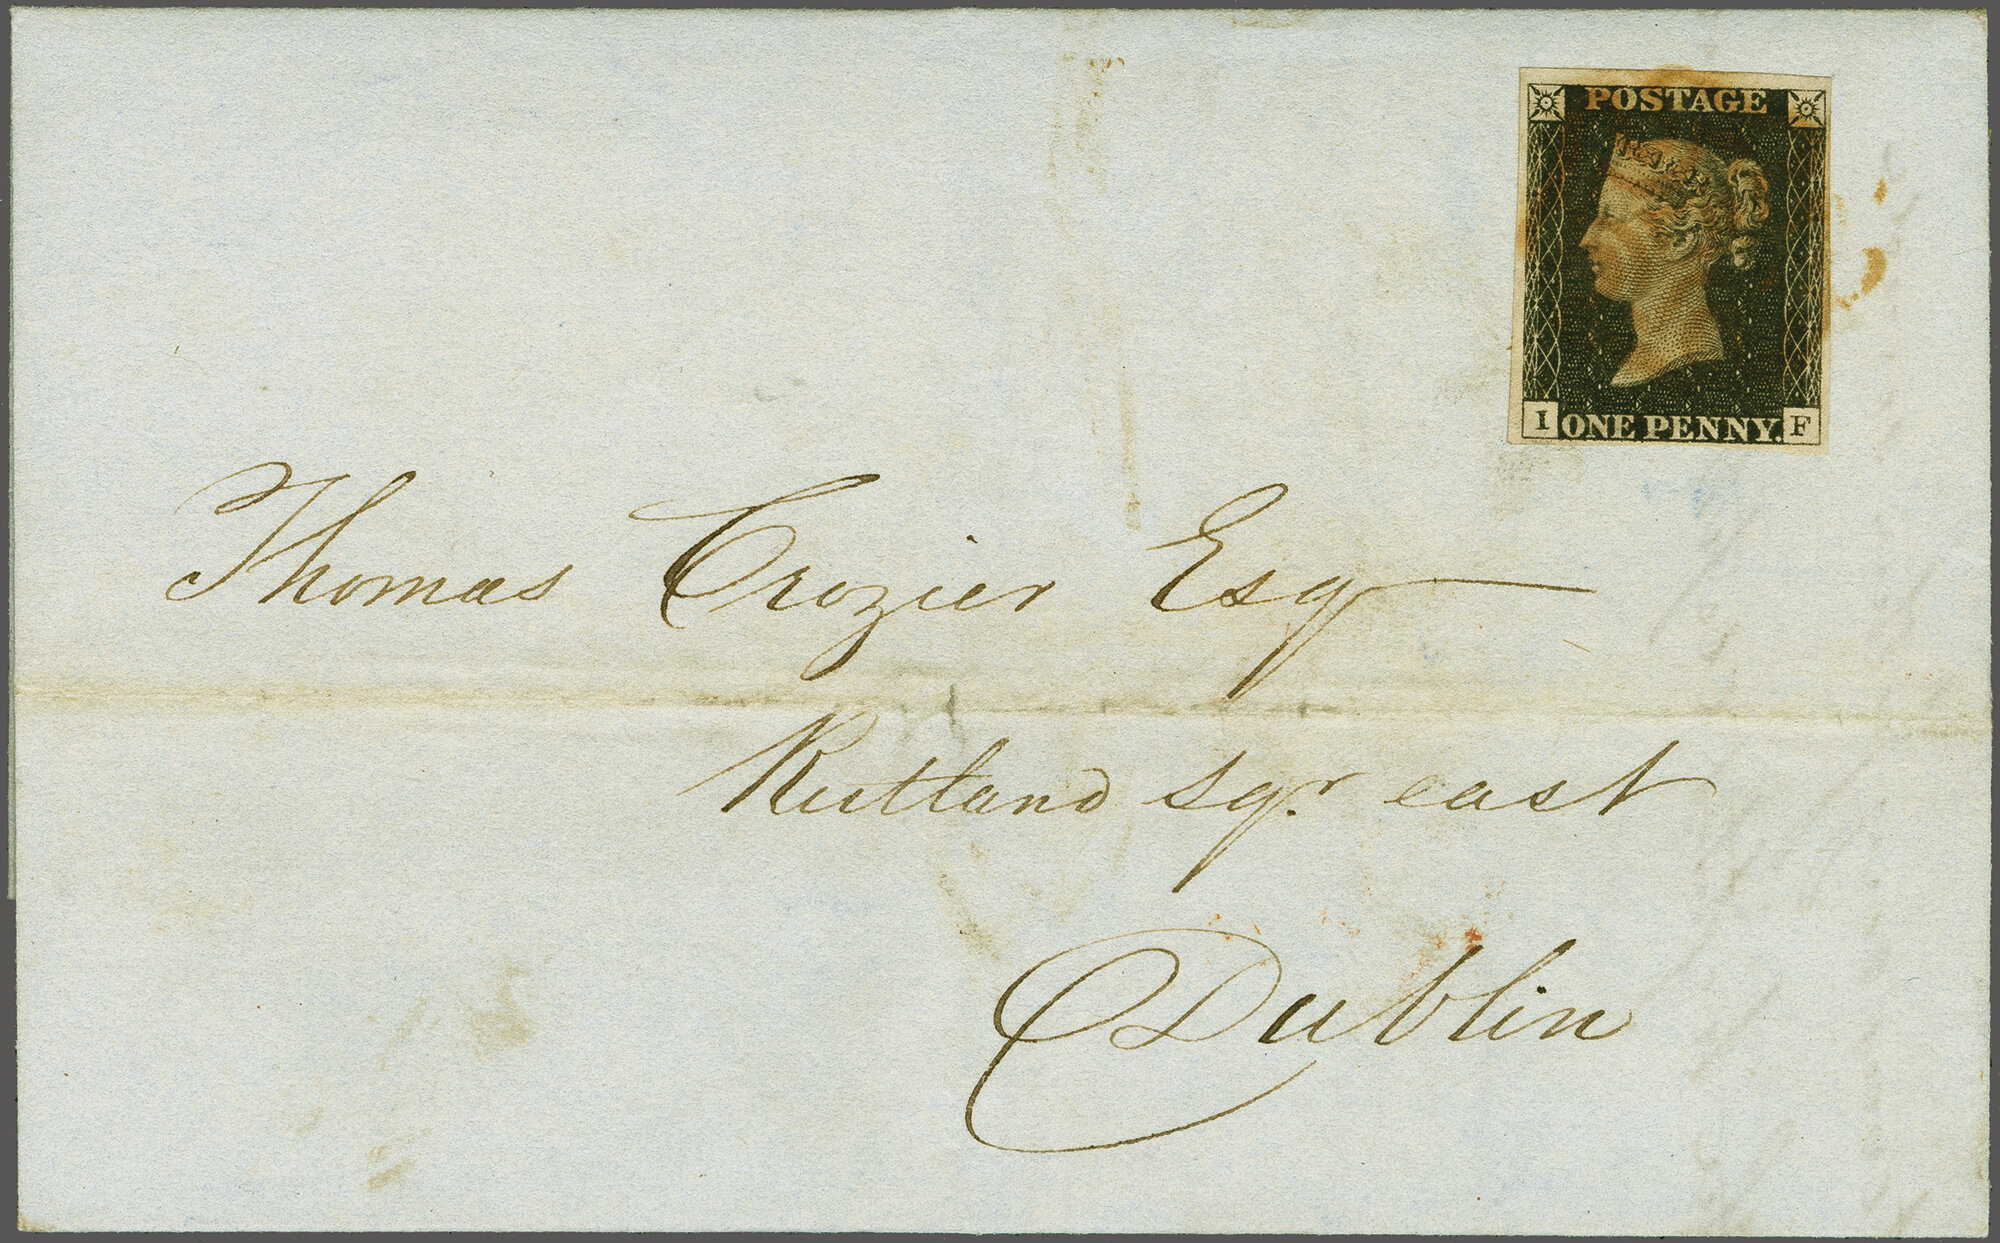 POSTAGE
I ONE PENNY. F
Thomas Crozier Esq
Rutland Sqr. east
Dublin